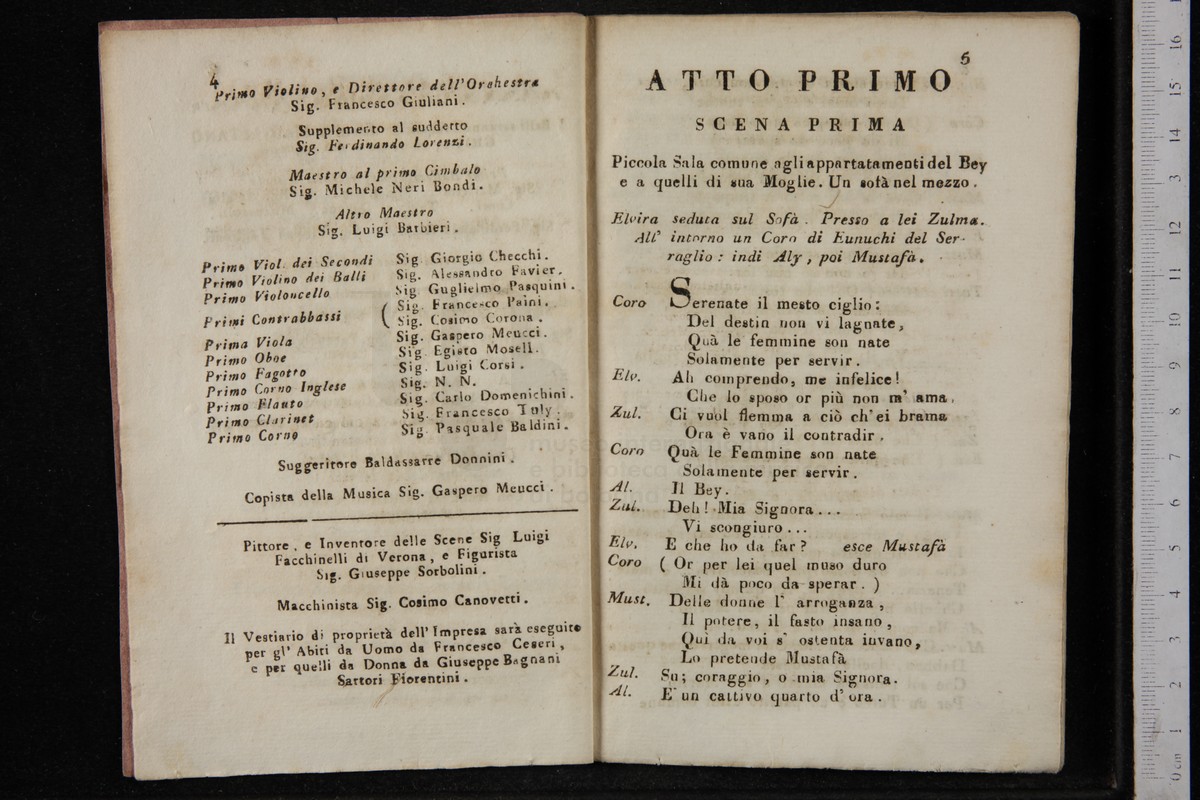 4
Primo Violino, e Direttore dell'Orchestra
Sig. Francesco Giuliani.
Supplemento al suddetto
Sig. Ferdinando Lorenzi.
Maestro al primo Cimbalo
Sig. Michele Neri Bondi.
Altro Maestro
Sig. Luigi Barbieri.
Primo Viol. dei Secondi Sig. Giorgio Checchi.
Primo Violino dei Balli Sig. Alessandro Favier.
Primo Violoncello Sig. Guglielmo Pasquini.
Primi Contrabbassi ( Sig. Francesco Paini.
Sig. Cosimo Corona.
Prima Viola Sig. Gaspero Meucci.
Primo Oboe Sig. Egisto Mosell.
Primo Fagotto Sig. Luigi Corsi.
Primo Corno Inglese Sig. N. N.
Primo Flauto Sig. Carlo Domenichini.
Primo Clarinet Sig. Francesco Tuly.
Primo Corno Sig. Pasquale Baldini.
Suggeritore Baldassarre Donnini.
Copista della Musica Sig. Gaspero Meucci.
Pittore, e Inventore delle Scene Sig Luigi
Facchinelli di Verona, e Figurista
Sig. Giuseppe Sorbolini.
Macchinista Sig. Cosimo Canovetti.
Il Vestiario di proprietà dell'Impresa sarà eseguito
per gl' Abiti da Uomo da Francesco Ceseri,
e per quelli da Donna da Giuseppe Bagnani
Sartori Fiorentini.
5
ATTO PRIMO
SCENA PRIMA
Piccola Sala comune agli appartatamenti del Bey
e a quelli di sua Moglie. Un sofà nel mezzo.
Elvira seduta sul Sofà. Presso a lei Zulma.
All' intorno un Coro di Eunuchi del Ser-
raglio: indi Aly, poi Mustafà.
Coro Serenate il mesto ciglio:
Del destin non vi lagnate,
Quà le femmine son nate
Solamente per servir.
Elv. Ah comprendo, me infelice!
Che lo sposo or più non m' ama.
Zul. Ci vuol flemma a ciò ch'ei brama
Ora è vano il contradir.
Coro Quà le Femmine son nate
Solamente per servir.
Al. Il Bey.
Zul. Deh! Mia Signora...
Vi scongiuro...
Elv. E che ho da far? esce Mustafà
Coro ( Or per lei quel muso duro
Mi dà poco da sperar. )
Must. Delle donne l' arroganza,
Il potere, il fasto insano,
Qui da voi s' ostenta invano,
Lo pretende Mustafà
Zul. Su; coraggio, o mia Signora.
Al. E' un cattivo quarto d' ora.
0 cm 1 2 3 4 5 6 7 8 9 10 11 12 13 14 15 16